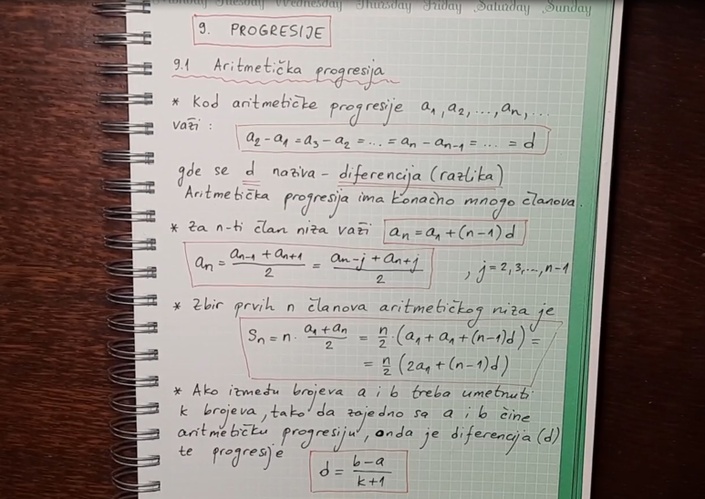 Tuesday Wednesday Thursday Friday Saturday Sunday
9. PROGRESIJE
9.1 Aritmetička progresija
* Kod aritmetičke progresije a₁, a₂, ..., aₙ, ...
važi :
a₂ - a₁ = a₃ - a₂ = ... = aₙ - aₙ₋₁ = ... = d
gde se d naziva - diferencija (razlika)
Aritmetička progresija ima konačno mnogo članova.
* Za n-ti član niza važi aₙ = a₁ + (n-1)d
aₙ = (aₙ₋₁ + aₙ₊₁)/2 = (aₙ₋ⱼ + aₙ₊ⱼ)/2 , j = 2, 3, ..., n-1
* Zbir prvih n članova aritmetičkog niza je
Sₙ = n · (a₁ + aₙ)/2 = n/2 · (a₁ + a₁ + (n-1)d) =
= n/2 (2a₁ + (n-1)d)
* Ako između brojeva a i b treba umetnuti
k brojeva, tako da zajedno sa a i b čine
aritmetičku progresiju, onda je diferencija (d)
te progresije
d = (b-a)/(k+1)